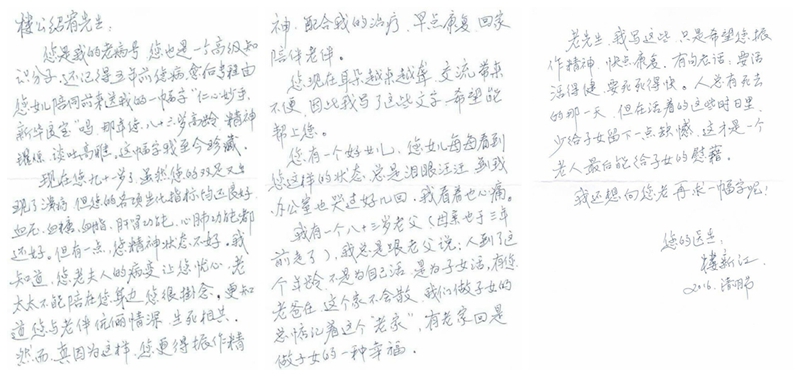 楼公绍宥先生：
您是我的老病号，您也是一个高级知
识分子，还记得五年前您病愈后专程由
您女儿陪同前来送我的一幅字“仁心妙手，
新华医宝”吗，那年您八十六岁高龄，精神
矍铄，谈吐高雅，这幅字我至今珍藏。
现在您九十一岁了，虽然您的双足又出
现了溃疡，但您的各项生化指标均还良好，
血压、血糖、血脂、肝肾功能、心肺功能都
还好。但有一点，您精神状态不好，我
知道，您老夫人的病变让您忧心，老
太太不能陪在您身边您很掛念，更知
道您与老伴伉俪情深，生死相共。
然而，真因为这样，您更得振作精
神，配合我的治疗，早点康复回家
陪伴老伴。
您现在耳朵越来越聋，交流带来
不便，因此我写了这些文字希望能
帮上您。
您有一个好女儿，您女儿每每看到
您这样的状态，总是泪眼汪汪，到我
办公室也哭过好几回，我看着也心痛。
我有一个八十三岁老父（母亲也于三年
前走了），我总是跟老父说：人到了这
个年龄，不是为自己活，是为子女活，有您
老爸在，这个家不会散，我们做子女的
总惦记着这个“老家”，有老家回是
做子女的一种幸福。
老先生，我写这些，只是希望您振
作精神，快点康复，有句老话，要活
活得健，要死死得快。人总有死去
的那一天，但在活着的这些时日里，
少给子女留下一点缺憾，这才是一个
老人最后能给子女的慰藉。
我还想向您老再求一幅字呢！
您的医生：
楼新江
2016.清明